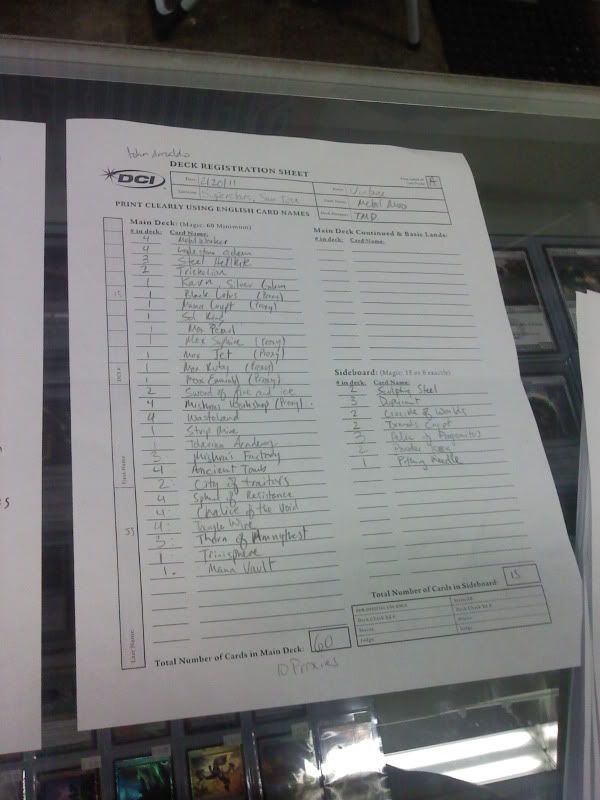 John
DECK REGISTRATION SHEET
DCI
Date: 2/20/11
Event: Vintage
Location: Superstars, San Jose
Deck Name: Metal MUD
Deck Designer: TMD
A
PRINT CLEARLY USING ENGLISH CARD NAMES
Main Deck: (Magic: 60 Minimum)
# in deck: Card Name:
4 Metalworker
4 Lodestone Golem
3 Steel Hellkite
2 Triskelion
1 Karn, Silver Golem
1 Black Lotus (Proxy)
1 Mana Crypt (Proxy)
1 Sol Ring
1 Mox Pearl
1 Mox Sapphire (Proxy)
1 Mox Jet (Proxy)
1 Mox Ruby (Proxy)
1 Mox Emerald (Proxy)
2 Sword of fire and ice
Mishras Workshop (Proxy)
4 Wasteland
1 Strip Mine
1 Tolarian Academy
3 Mishra's Factory
4 Ancient Tomb
2 City of traitors
4 Sphere of Resistance
4 Chalice of the Void
4 Tangle Wire
3 Thorn of Amethyst
1 Trinisphere
1 Mana Vault
Total Number of Cards in Main Deck: 60
10 Proxies
Main Deck Continued & Basic Lands:
# in deck: Card Name:
Sideboard: (Magic: 15 or 0 exactly)
# in deck: Card Name:
2 Sculpting Steel
3 Duplicant
2 Crucible of Worlds
2 Tormods Crypt
3 Relic of Progenitus
2
1 Pithing Needle
Total Number of Cards in Sideboard: 15
FOR OFFICIAL USE ONLY
Deck Check Rd #:
Status:
Judge:
Deck Check Rd #:
Status:
Judge:
First Name:
Last Name: